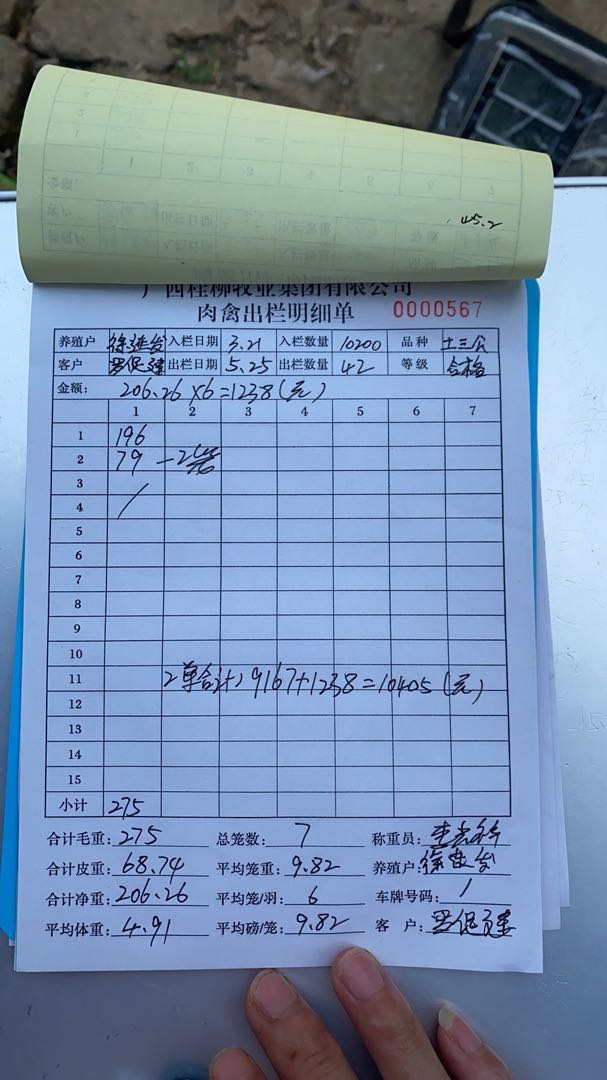 广西桂柳牧业集团有限公司
肉禽出栏明细单 0000567
养殖户 入栏日期 3.21 入栏数量 10200 品种 土三公
客户 出栏日期 5.25 出栏数量 42 等级 合格
金额： 206.26×6=1238(元)
1 2 3 4 5 6 7
1 196
2 79 -2笼
3
4 /
5
6
7
8
9
10
11 2单合计) 9167+1238=10405(元)
12
13
14
15
小计 275
合计毛重: 275 总笼数: 7 称重员:
合计皮重: 68.74 平均笼重: 9.82 养殖户:
合计净重: 206.26 平均笼/羽: 6 车牌号码: /
平均体重: 4.91 平均磅/笼: 9.82 客 户: